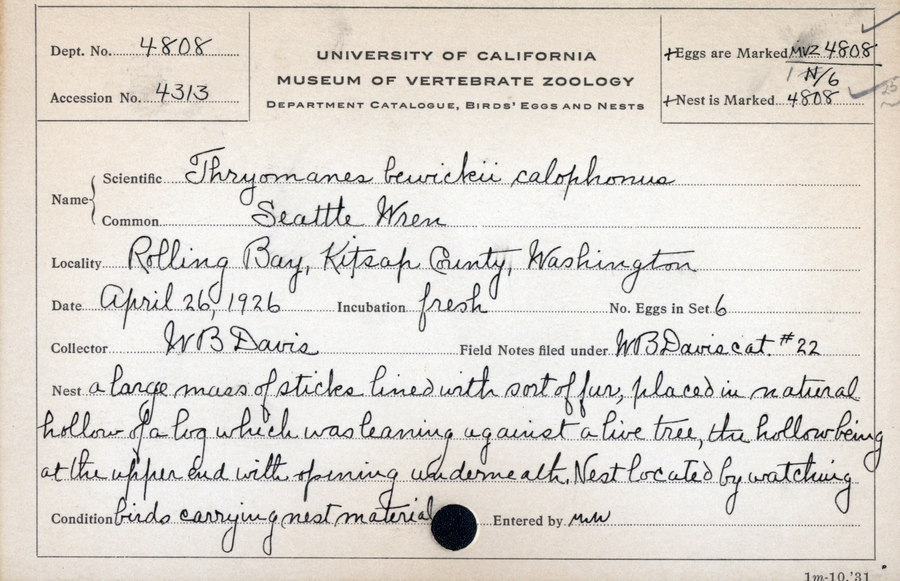 Dept. No. 4808
Accession No. 4313
UNIVERSITY OF CALIFORNIA
MUSEUM OF VERTEBRATE ZOOLOGY
DEPARTMENT CATALOGUE, BIRDS' EGGS AND NESTS
+Eggs are Marked MVZ 4808
1 N/6
+Nest is Marked 4808
25
Name
Scientific Thryomanes bewickii calophonus
Common Seattle Wren
Locality Rolling Bay, Kitsap County, Washington
Date April 26, 1926 Incubation fresh No. Eggs in Set 6
Collector WB Davis Field Notes filed under WB Davis cat. #22
Nest a large mass of sticks lined with sort of fur, placed in natural
hollow of a log which was leaning against a live tree, the hollow being
at the upper end with opening underneath. Nest located by watching
Condition birds carrying nest material Entered by
1m-10,'31